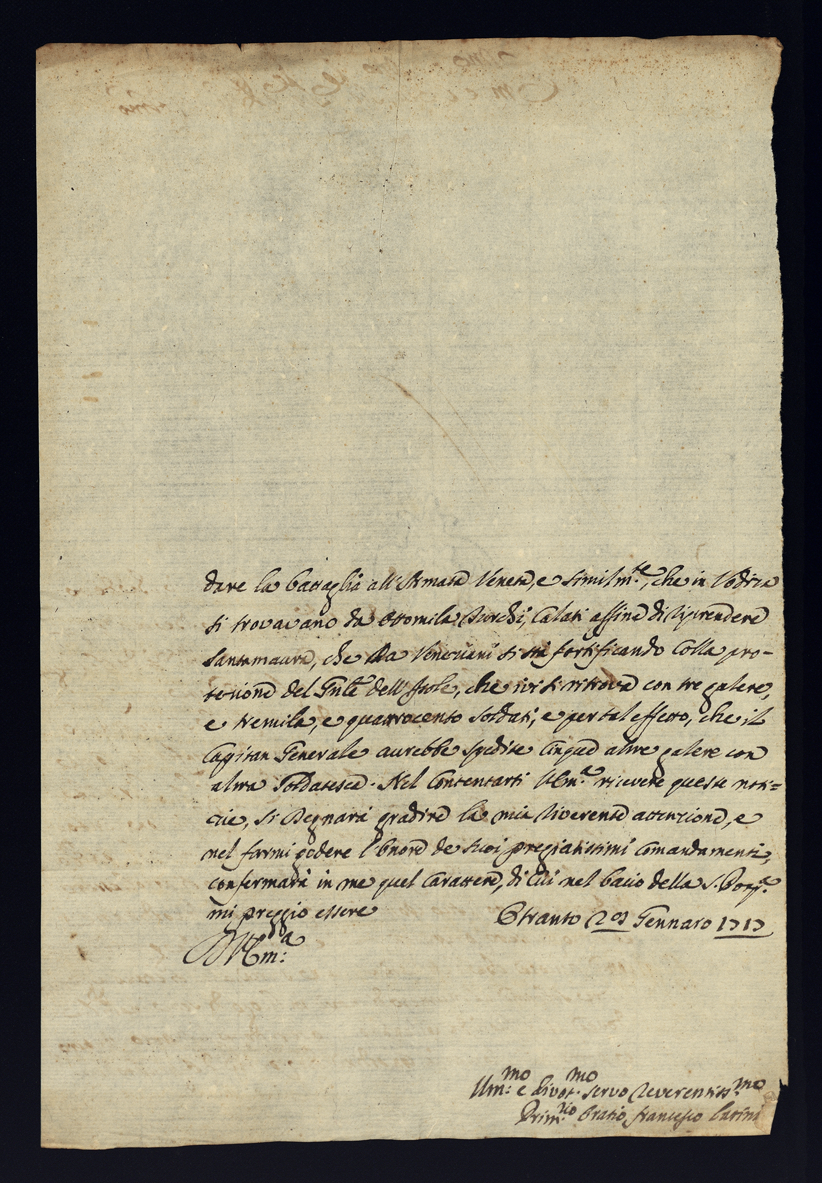 dare la battaglia all'Armata Veneta, e similm.te, che in Vodiza
si trovavano da ottomila Turchi, calati affine di riprendere
Santamaura, che da Veneziani si stà fortificando colla pro-
tezzione del Gnle dell'Isole, che ivi si ritrova con tre galere,
e tremila, e quattrocento soldati, e per tal effetto, che il
Capitan Generale aurebbe spedite cinque altre galere con
altra soldatesca. Nel contentarsi V.S.Ill.ma ricevere queste noti=
cie, si degnarà gradire la mia riverente attenzione, e
nel farmi godere l'onore de suoi pregiatissimi comandamenti,
confermarà in me quel carattere, di cui nel bacio della s. Porp.a
mi preggio essere
Otranto 2 Gennaro 1717
Um.mo e divot.mo servo reverentiss.mo
Prim.rio Oratio Francesco